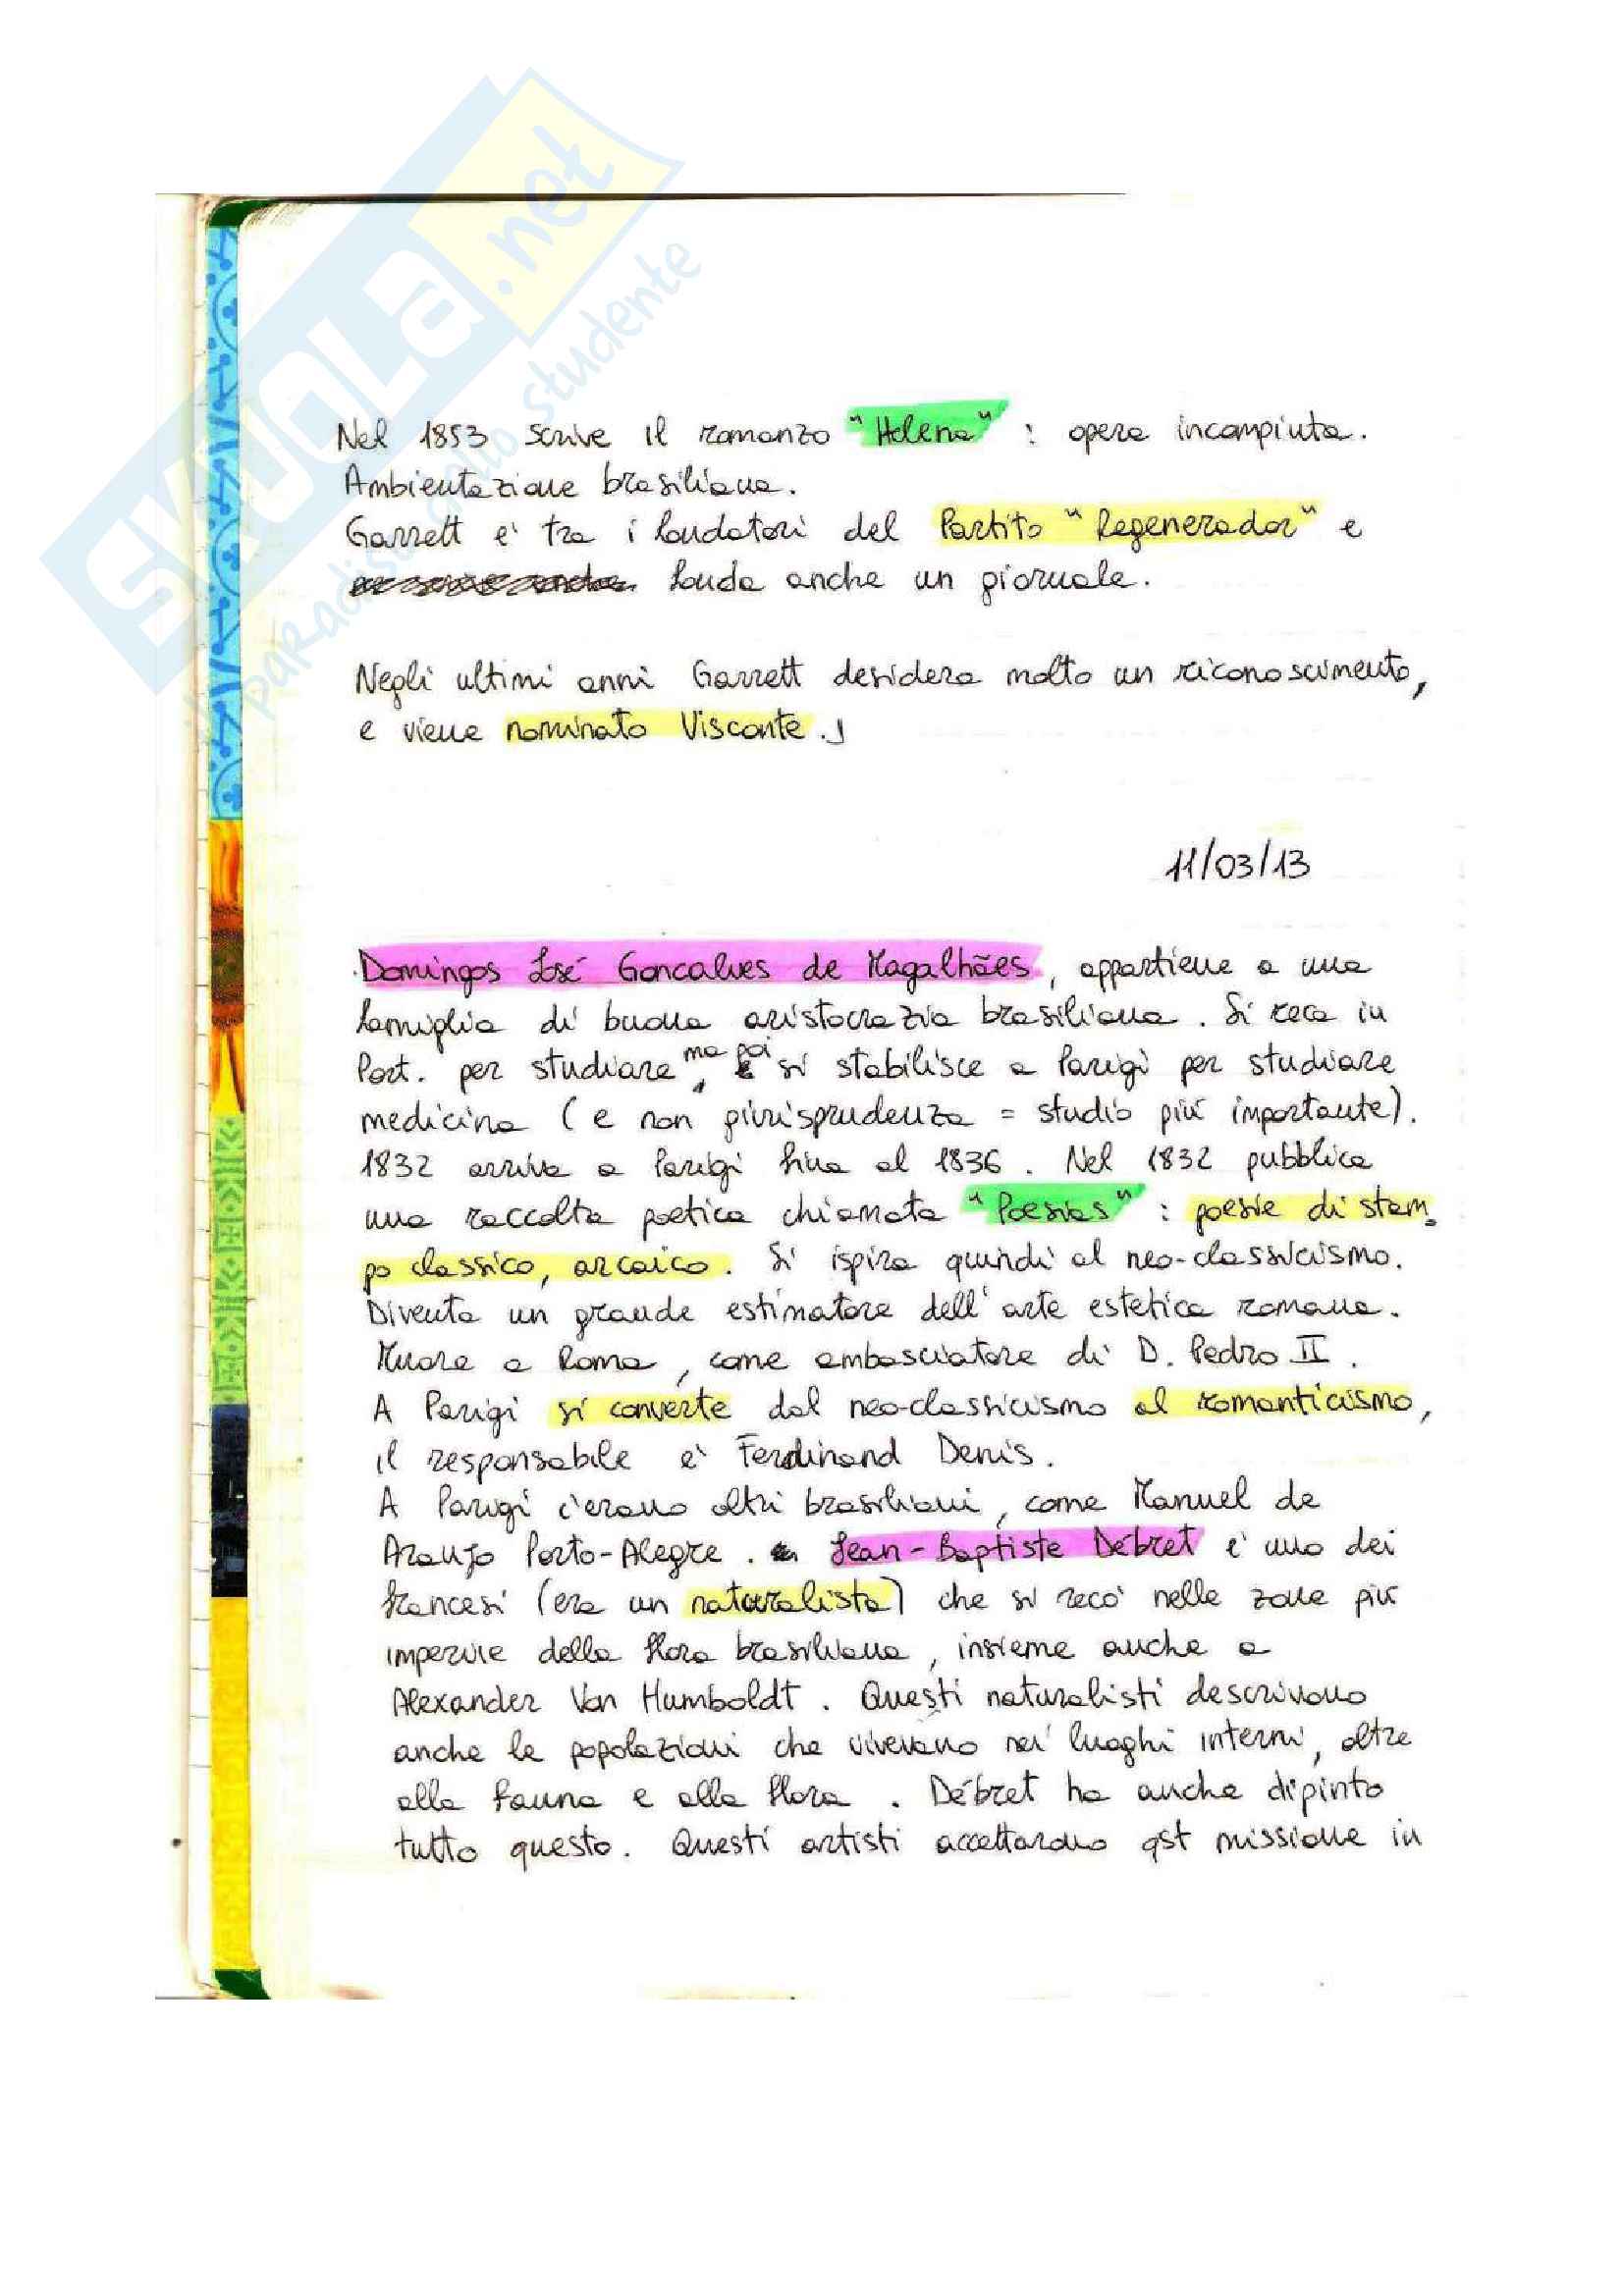 SKUOLA.net
il paradiso dello studente
Nel 1853 scrive il romanzo "Helena" : opera incompiuta.
Ambientazione brasiliana.
Garrett e' tra i fondatori del Partito "Regenerador" e
fonda anche un giornale.
Negli ultimi anni Garrett desidera molto un riconoscimento,
e viene nominato Visconte.
11/03/13
Domingos José Goncalves de Magalhães, appartiene a una
famiglia di buona aristocrazia brasiliana. Si reca in
Port. per studiare, ma poi si stabilisce a Parigi per studiare
medicina (e non giurisprudenza = studio piu' importante).
1832 arriva a Parigi fino al 1836. Nel 1832 pubblica
una raccolta poetica chiamata "Poesias" : poesie di stam-
po classico, arcaico. Si ispira quindi al neo-classicismo.
Diventa un grande estimatore dell'arte estetica romana.
Muore a Roma, come ambasciatore di D. Pedro II.
A Parigi si converte dal neo-classicismo al romanticismo,
il responsabile e' Ferdinand Denis.
A Parigi c'erano altri brasiliani, come Manuel de
Araujo Porto-Alegre. Jean-Baptiste Débret e' uno dei
francesi (era un naturalista) che si reco' nelle zone piu'
impervie della flora brasiliana, insieme anche a
Alexander Von Humboldt. Questi naturalisti descrivono
anche le popolazioni che vivevano nei luoghi interni, oltre
alla fauna e alla flora. Débret ha anche dipinto
tutto questo. Questi artisti accettarono qst missione in